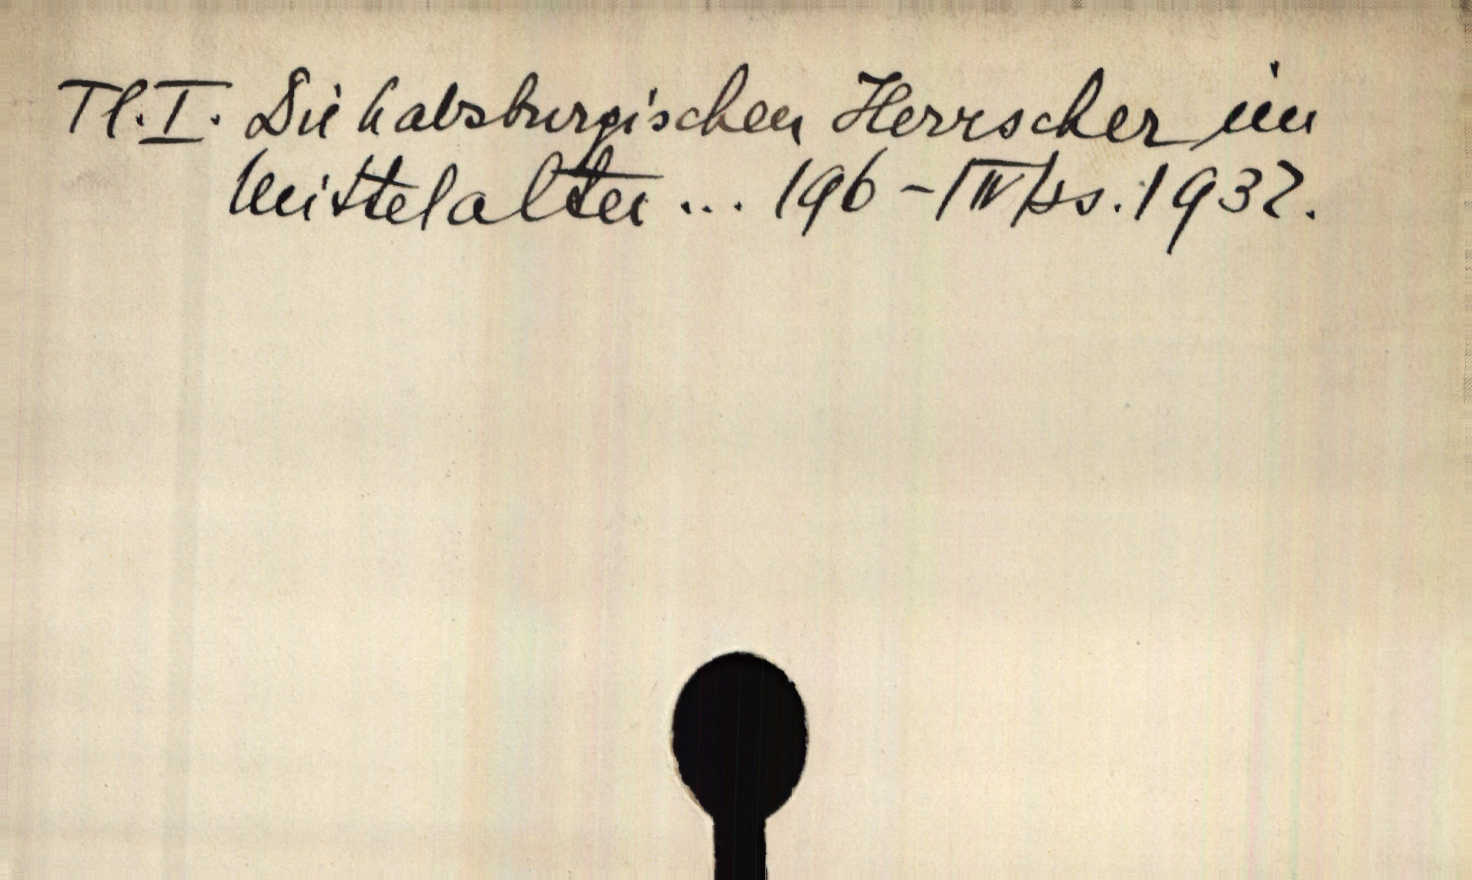 Tl. I. Die habsburgischen Herrscher im
Mittelalter ... 196 - |IV| ss. 1932.